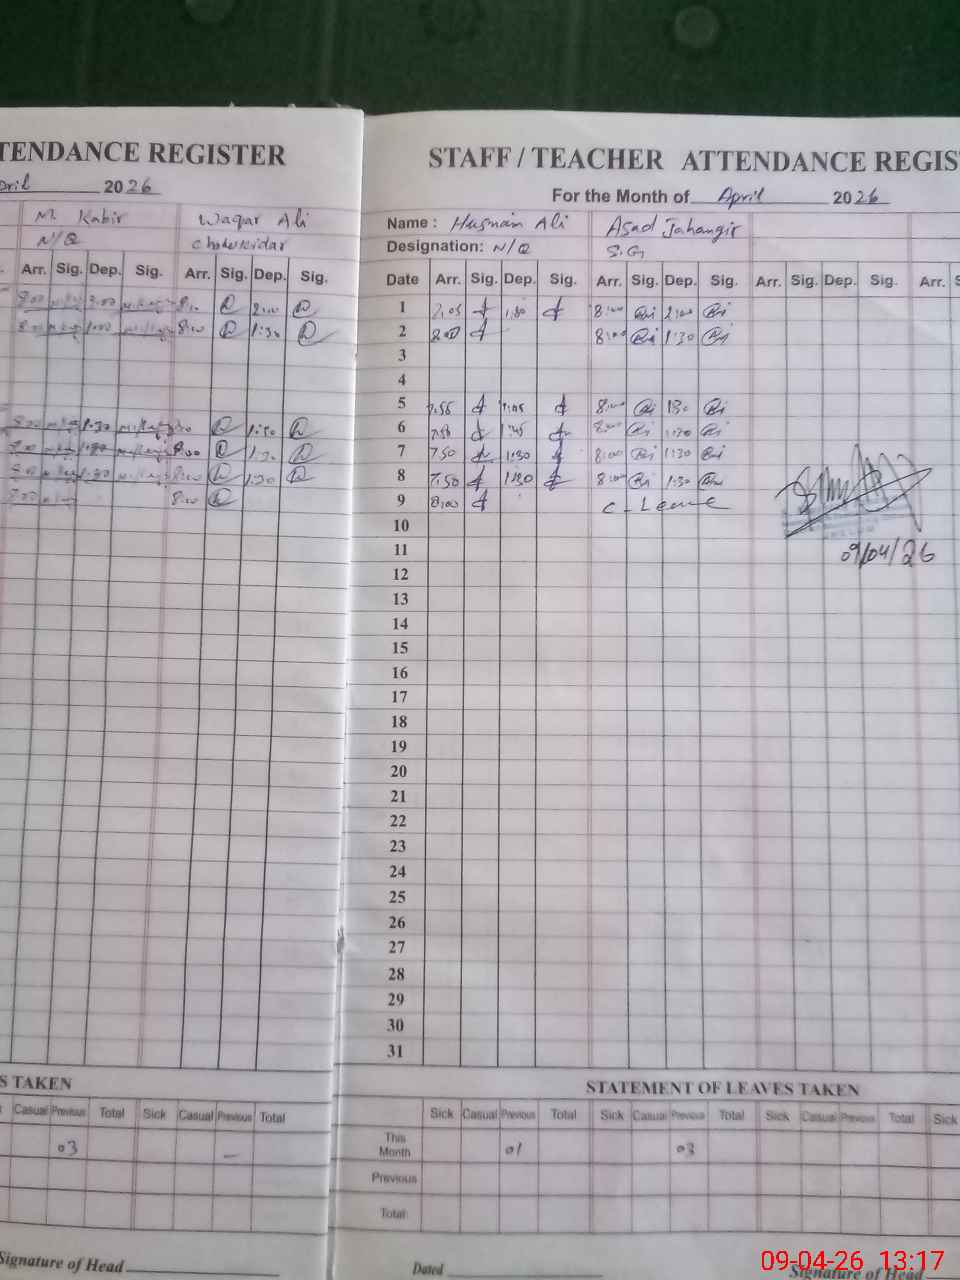 TENDANCE REGISTER
April 2026
M. Kabir Waqar Ali
N/Q Chowkidar
Arr. Sig. Dep. Sig. Arr. Sig. Dep. Sig.
8:00 2:00 8:00 2:00
8:00 1:00 8:00 1:30
8:00 1:30 1:30
8:00 1:30 8:00 1:30
8:00 1:30 8:00 1:30
8:00 8:00
S TAKEN
Casual Previous Total Sick Casual Previous Total
03 –
Signature of Head
STAFF / TEACHER ATTENDANCE REGIS
For the Month of April 2026
Name : Husnain Ali Asad Jahangir
Designation: N/Q S.G
Date Arr. Sig. Dep. Sig. Arr. Sig. Dep. Sig. Arr. Sig. Dep. Sig. Arr. S
1 7.05 1:30 8:00 2:00
2 8:00 8:00 1:30
3
4
5 7.55 8:00 1:30
6 7.50 1:45 8:00 1:30
7 7.50 1:30 8:00 1:30
8 7.50 1:30 8:00 1:30
9 8:00 C-Leave
09/04/26
10
11
12
13
14
15
16
17
18
19
20
21
22
23
24
25
26
27
28
29
30
31
STATEMENT OF LEAVES TAKEN
Sick Casual Previous Total Sick Casual Previous Total Sick Casual Previous Total Sick
This Month 01 03
Previous
Total
Dated Signature of Head
09-04-26 13:17